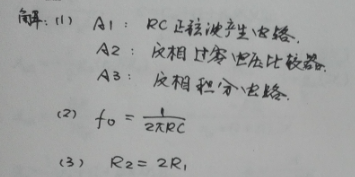 简解：(1) A1： RC正弦波产生电路.
A2： 反相过零电压比较器.
A3： 反相积分电路.
(2) f₀ = 1/2πRC
(3) R2 = 2R1